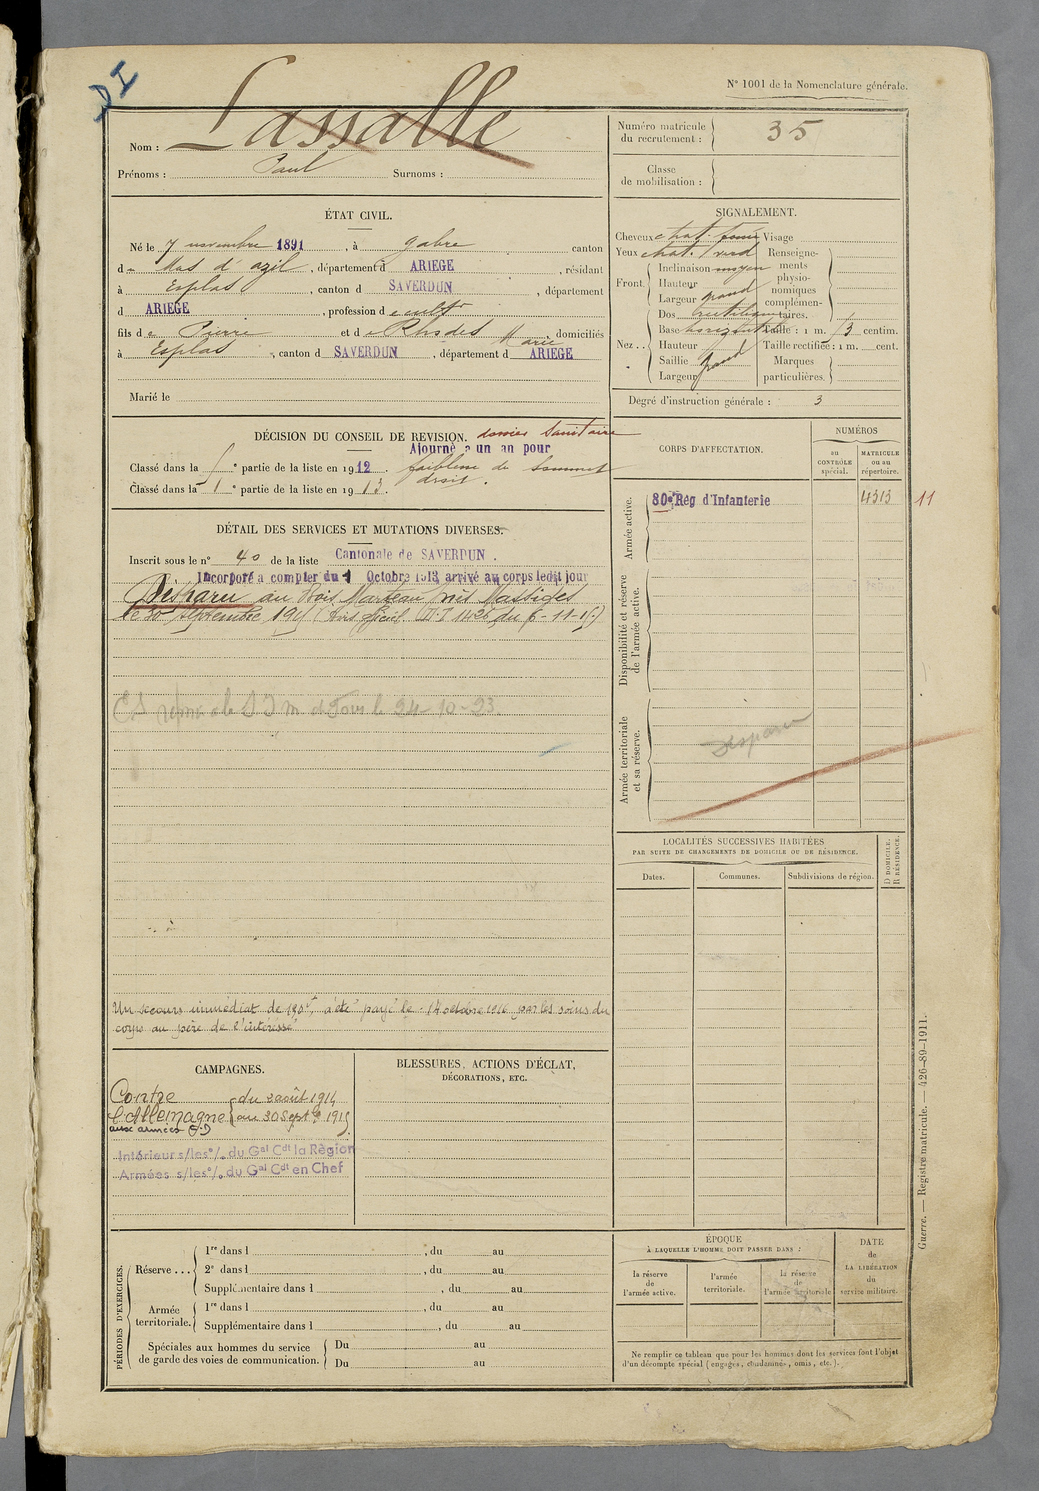 DI
N° 1001 de la Nomenclature générale.
Nom : Lassalle
Prénoms : Paul Surnoms :
Numéro matricule du recrutement : 35
Classe de mobilisation :
ÉTAT CIVIL.
Né le 7 novembre 1891, à Gabre canton
d Mas d'azil, département d ARIEGE, résidant
à Esplas, canton d SAVERDUN, département
d ARIEGE, profession de cultr
fils de Pierre et de Rhodes Marie domiciliés
à Esplas, canton d SAVERDUN, département d ARIEGE
Marié le
SIGNALEMENT.
Cheveux chat. foncé Visage
Yeux chat. verd Renseigne-
Front. Inclinaison moyen ments
Hauteur physio-
Largeur grand nomiques
complémen-
Dos rectiligne taires.
Nez .. Base horizontale Taille : 1 m. 73 centim.
Hauteur Taille rectifiée : 1 m. cent.
Saillie grand Marques
Largeur particulières.
Degré d'instruction générale : 3
DÉCISION DU CONSEIL DE REVISION. dossier sanitaire
Ajourné a un an pour
Classé dans la partie de la liste en 1912. faiblesse de sommet
Classé dans la 1e partie de la liste en 1913. droit.
CORPS D'AFFECTATION.
NUMÉROS
au CONTRÔLE spécial.
MATRICULE ou au répertoire.
Armée active.
80e Rég d'Infanterie 4313 11
Disponibilité et réserve de l'armée active.
Armée territoriale et sa réserve.
Disparu
DÉTAIL DES SERVICES ET MUTATIONS DIVERSES.
Inscrit sous le n° 40 de la liste Cantonale de SAVERDUN.
Incorporé a compter du 1 Octobre 1913, arrivé au corps ledit jour
Disparu au Bois Marteau près Massiges
le 30 septembre 1915 (Avis officiel du 6-11-15)
le 24-10-23
Un secours immédiat de 150f, a été payé le 14 octobre 1916 par les soins du
corps au père de l'intéressé
LOCALITÉS SUCCESSIVES HABITÉES
PAR SUITE DE CHANGEMENTS DE DOMICILE OU DE RÉSIDENCE.
Dates. Communes. Subdivisions de région.
D DOMICILE.
R RÉSIDENCE.
CAMPAGNES.
Contre du 2 août 1914
l'Allemagne au 30 Septbre 1915
aux armées
Intérieur s/les o/. du Gal Cdt la Région
Armées s/les o/. du Gal Cdt en Chef
BLESSURES, ACTIONS D'ÉCLAT,
DÉCORATIONS, ETC.
PÉRIODES D'EXERCICES.
Réserve ... 1re dans l , du au
2e dans l , du au
Supplémentaire dans l , du au
Armée territoriale. 1re dans l , du au
Supplémentaire dans l , du au
Spéciales aux hommes du service Du au
de garde des voies de communication. Du au
ÉPOQUE
À LAQUELLE L'HOMME DOIT PASSER DANS :
la réserve de l'armée active.
l'armée territoriale.
la réserve de l'armée territoriale
DATE
de
LA LIBÉRATION
du
service militaire.
Ne remplir ce tableau que pour les hommes dont les services font l'objet
d'un décompte spécial (engagés, condamnés, omis, etc.).
Guerre. — Registre matricule. — 426-89-1911.